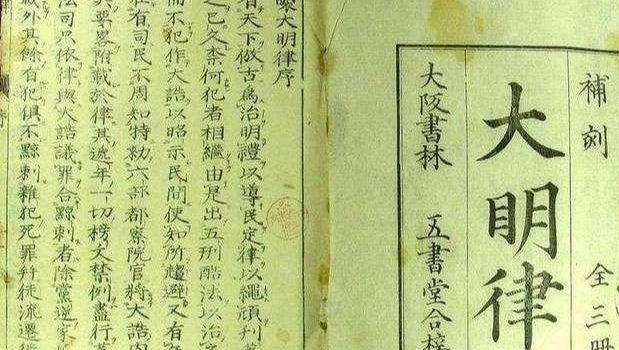 補刻 全三冊
大明律
大阪書林 五書堂合梓
大明律序
有天下倣古爲治明禮以導民定律以繩頑刊
之已久奈何犯者相繼由是出五刑酷法以治
而不犯作大誥以昭示民間使知所趨避又有
在有司民不周知特勑六部都察院官將大誥内
其要畧附載於律其遞年一切榜文禁例盡行
法司只依律與大誥議罪合黥刺者除黨逆家
載外其餘有犯俱不黥刺雜犯死罪并徒流遷